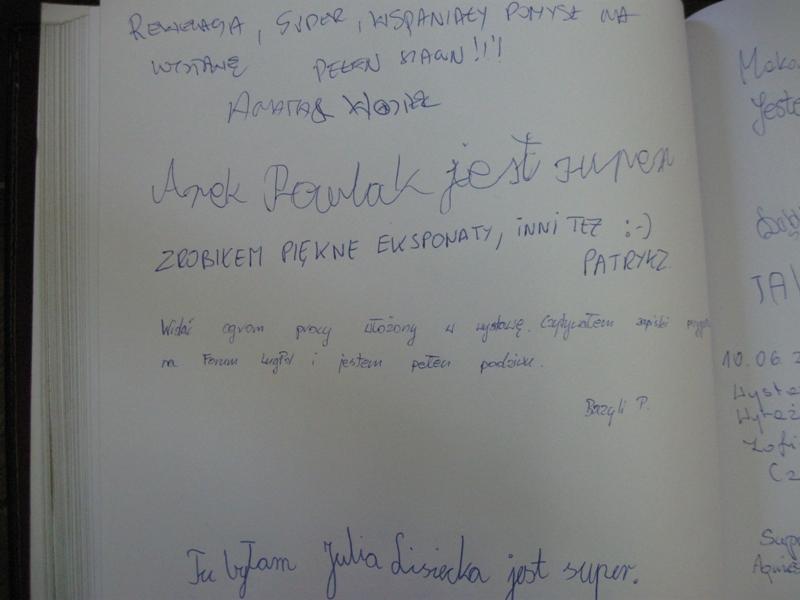 REWELACJA, SUPER, WSPANIAŁY POMYSŁ NA
WYSTAWĘ PEŁEN SZACUN!!!
Arek Pawlak jest super
ZROBIŁEM PIĘKNE EKSPONATY, INNI TEŻ :-)
PATRYK Z.
Widać ogrom pracy włożony w wystawę. Czytywałem zapiski
na Forum LugPol i jestem pełen podziwu.
Bazyli P.
Tu byłam Julia Lisiecka jest super.
Jest
JA
10.06.2
Wysta
Wyraż
Zofi
Cz
Supe
Agnies